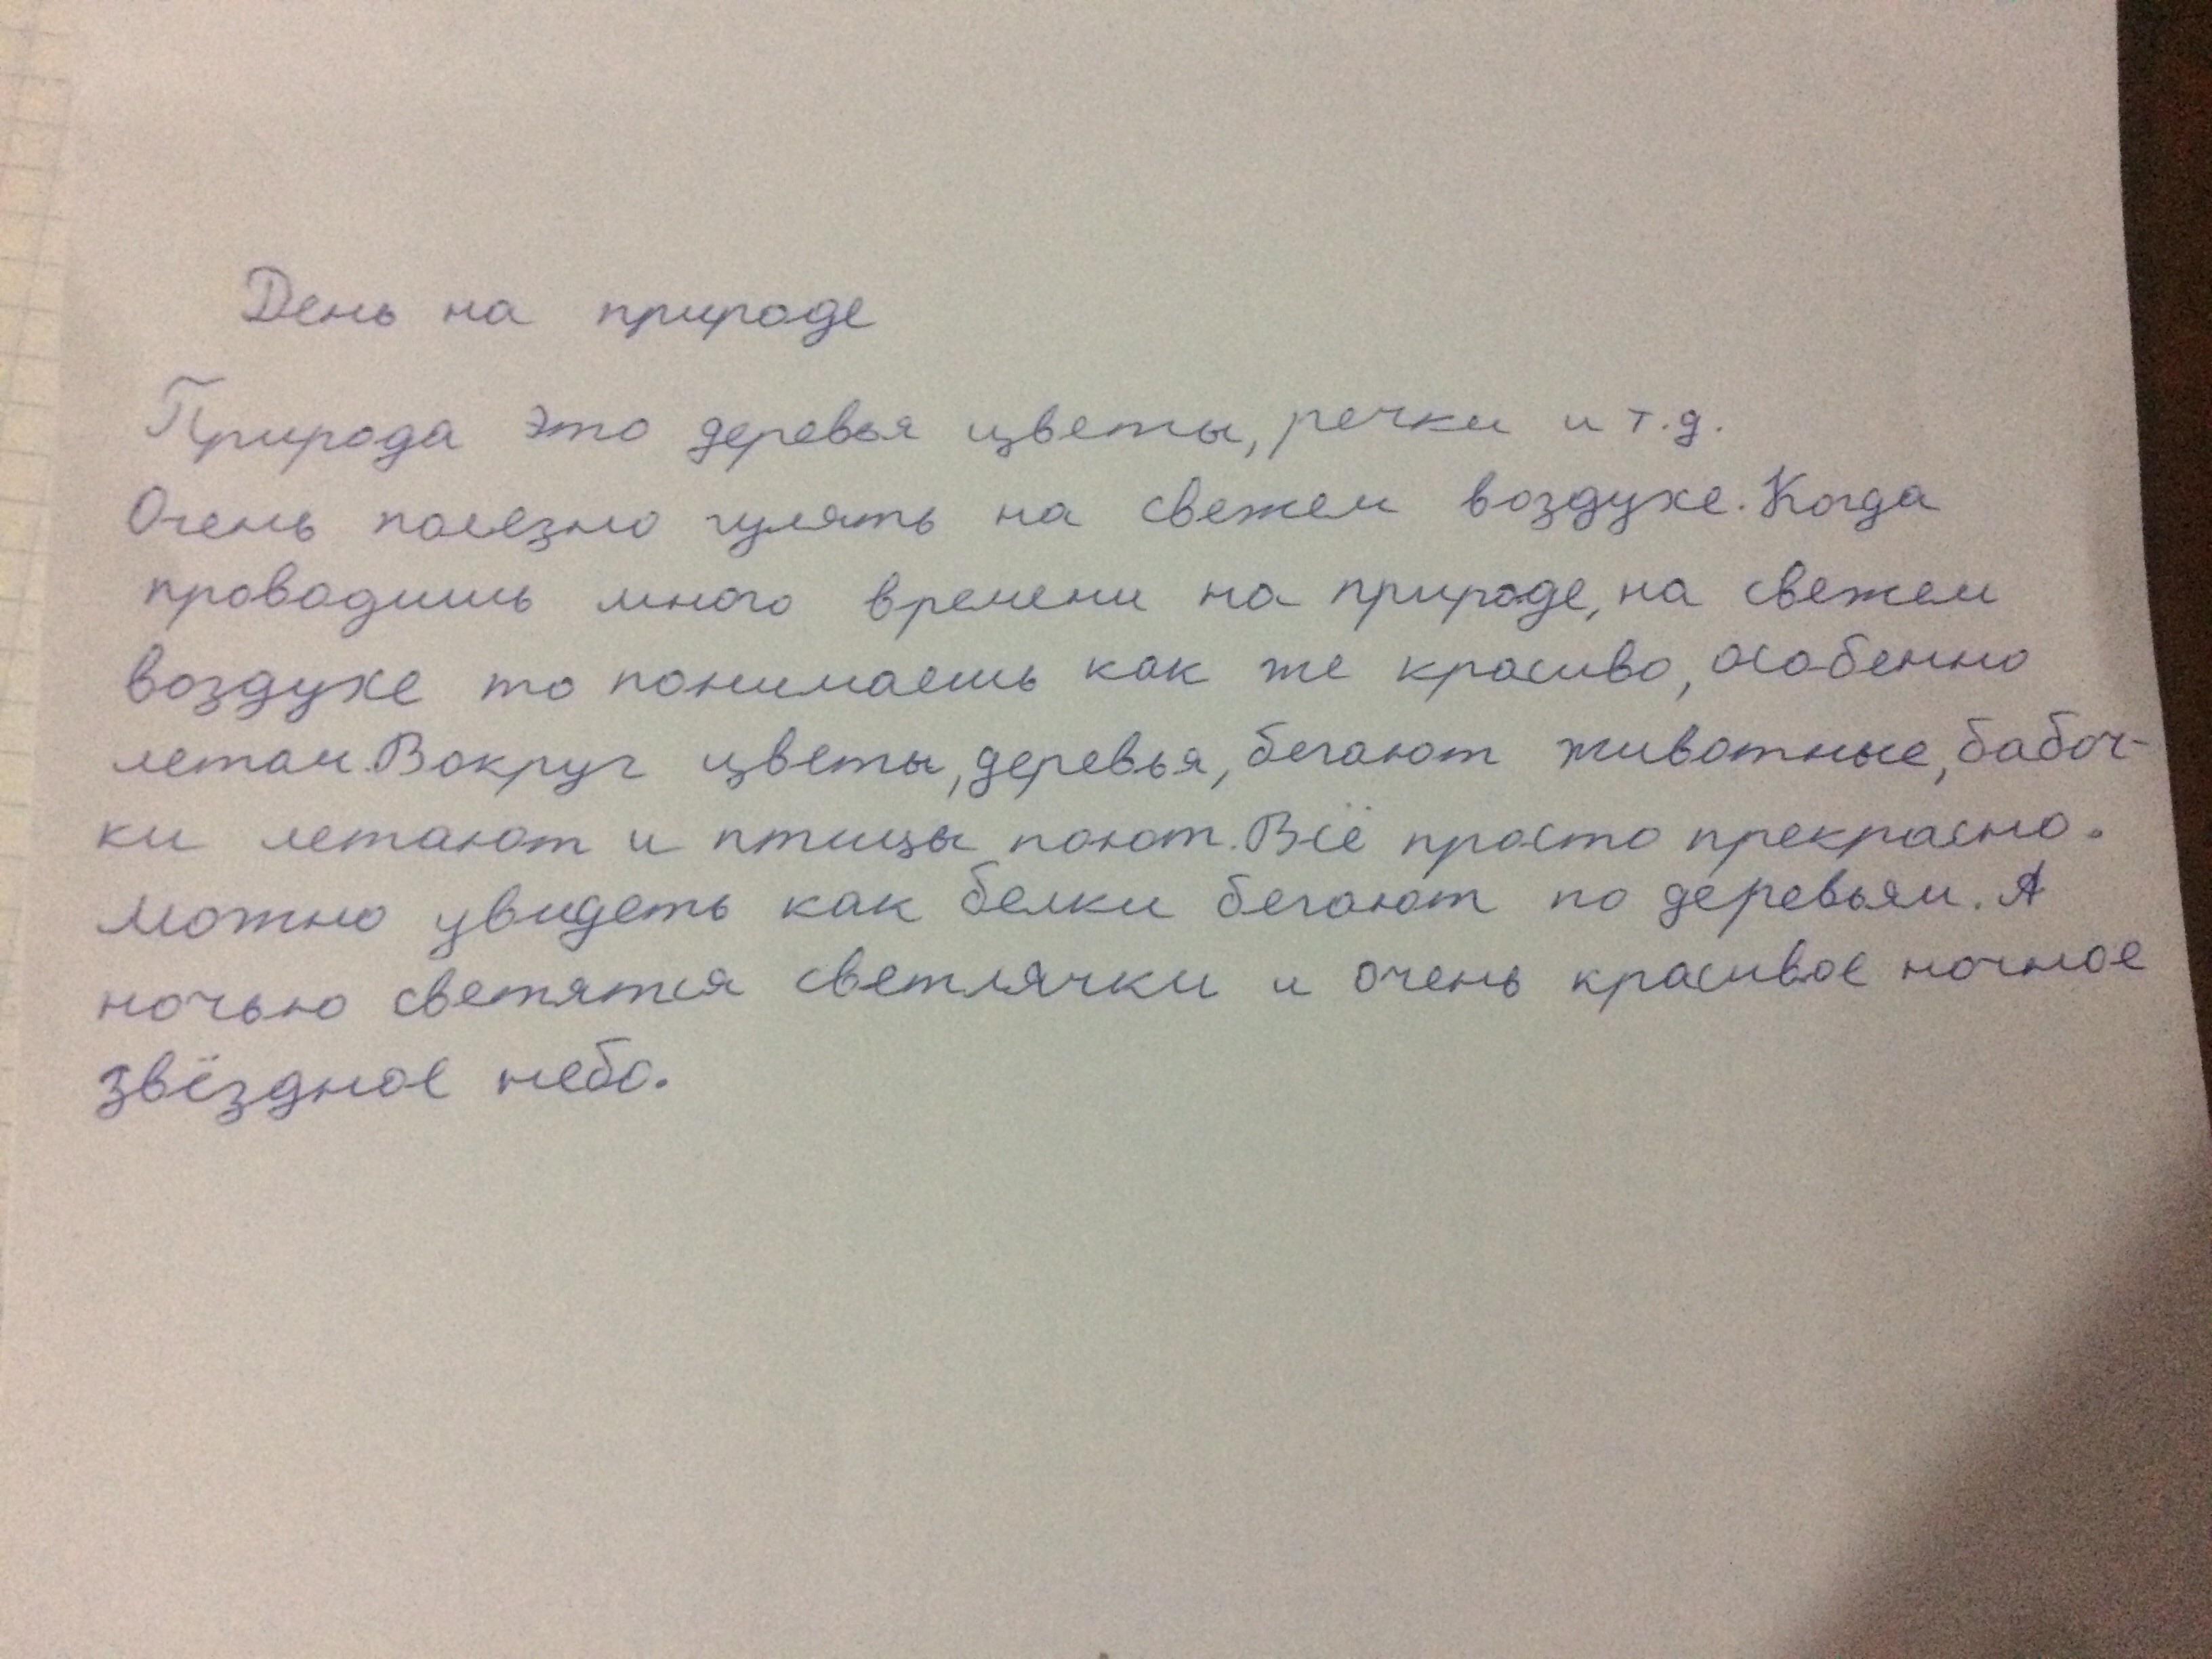 День на природе
Природа это деревья цветы, речки и т.д.
Очень полезно гулять на свежем воздухе. Когда
проводишь много времени на природе, на свежем
воздухе то понимаешь как же красиво, особенно
летом. Вокруг цветы, деревья, бегают животные, бабоч-
ки летают и птицы поют. Всё просто прекрасно.
Можно увидеть как белки бегают по деревьям. А
ночью светятся светлячки и очень красивое ночное
звёздное небо.